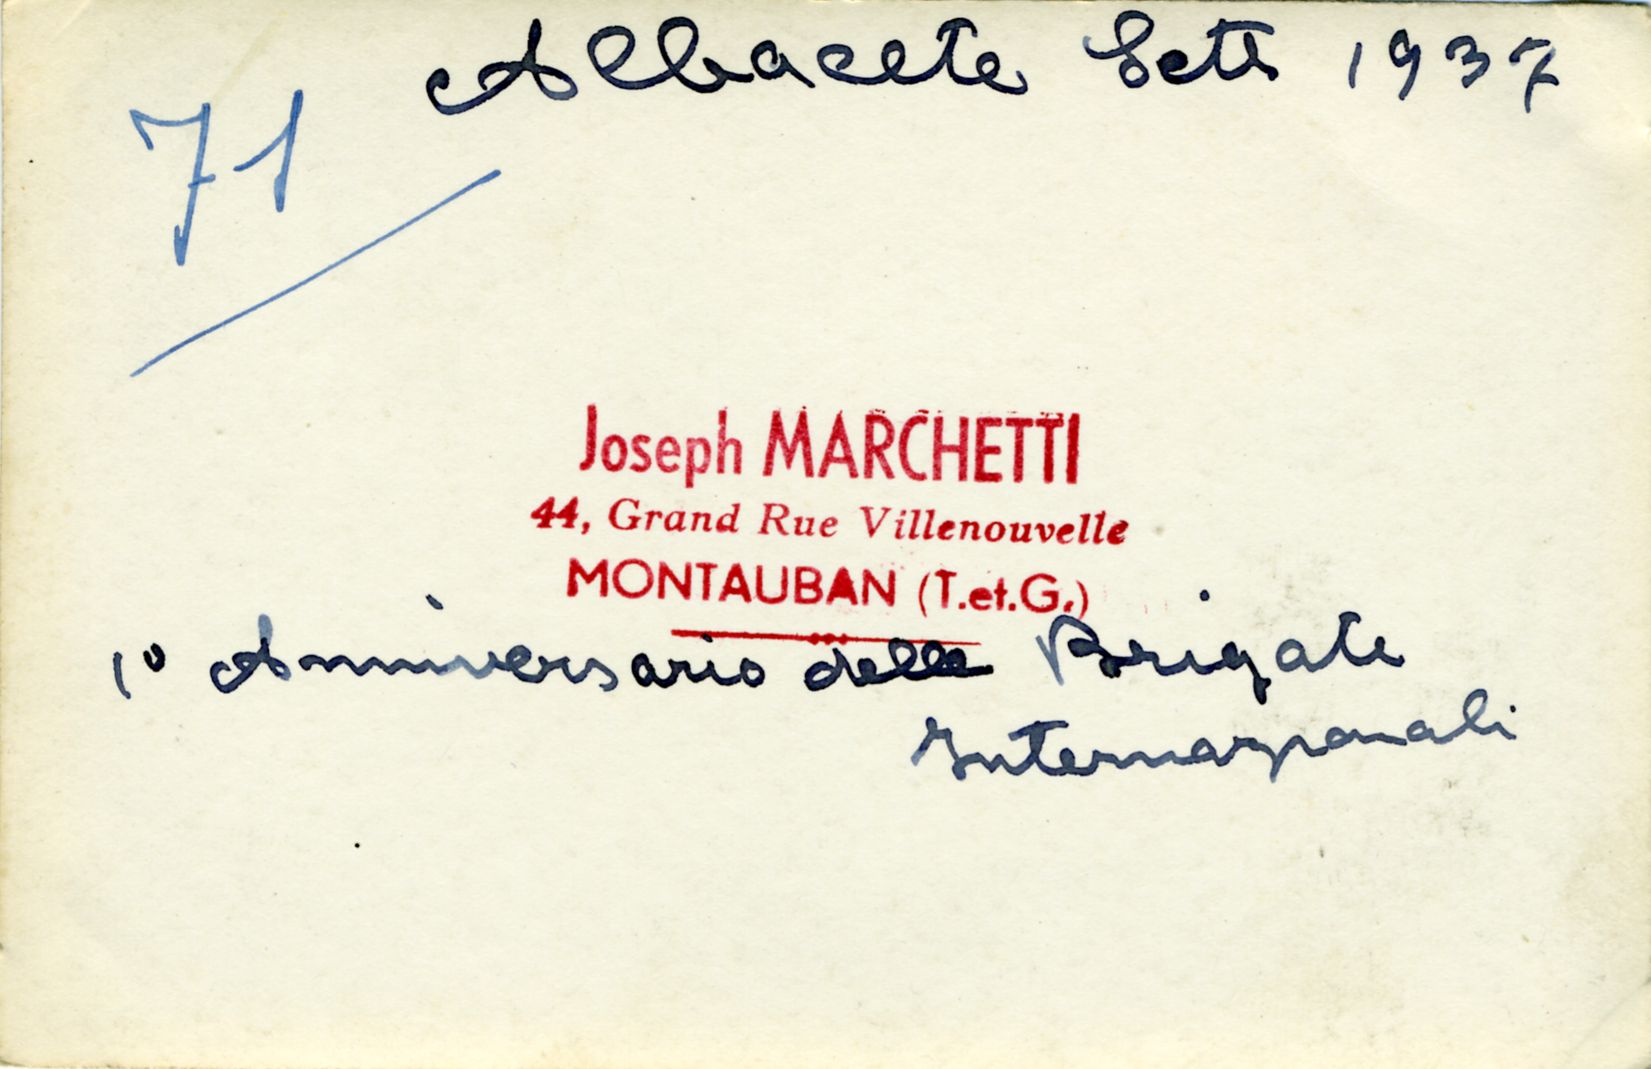 Albacete Sett 1937
71
Joseph MARCHETTI
44, Grand Rue Villenouvelle
MONTAUBAN (T.et.G.)
1º Anniversario delle Brigate
Internazionali